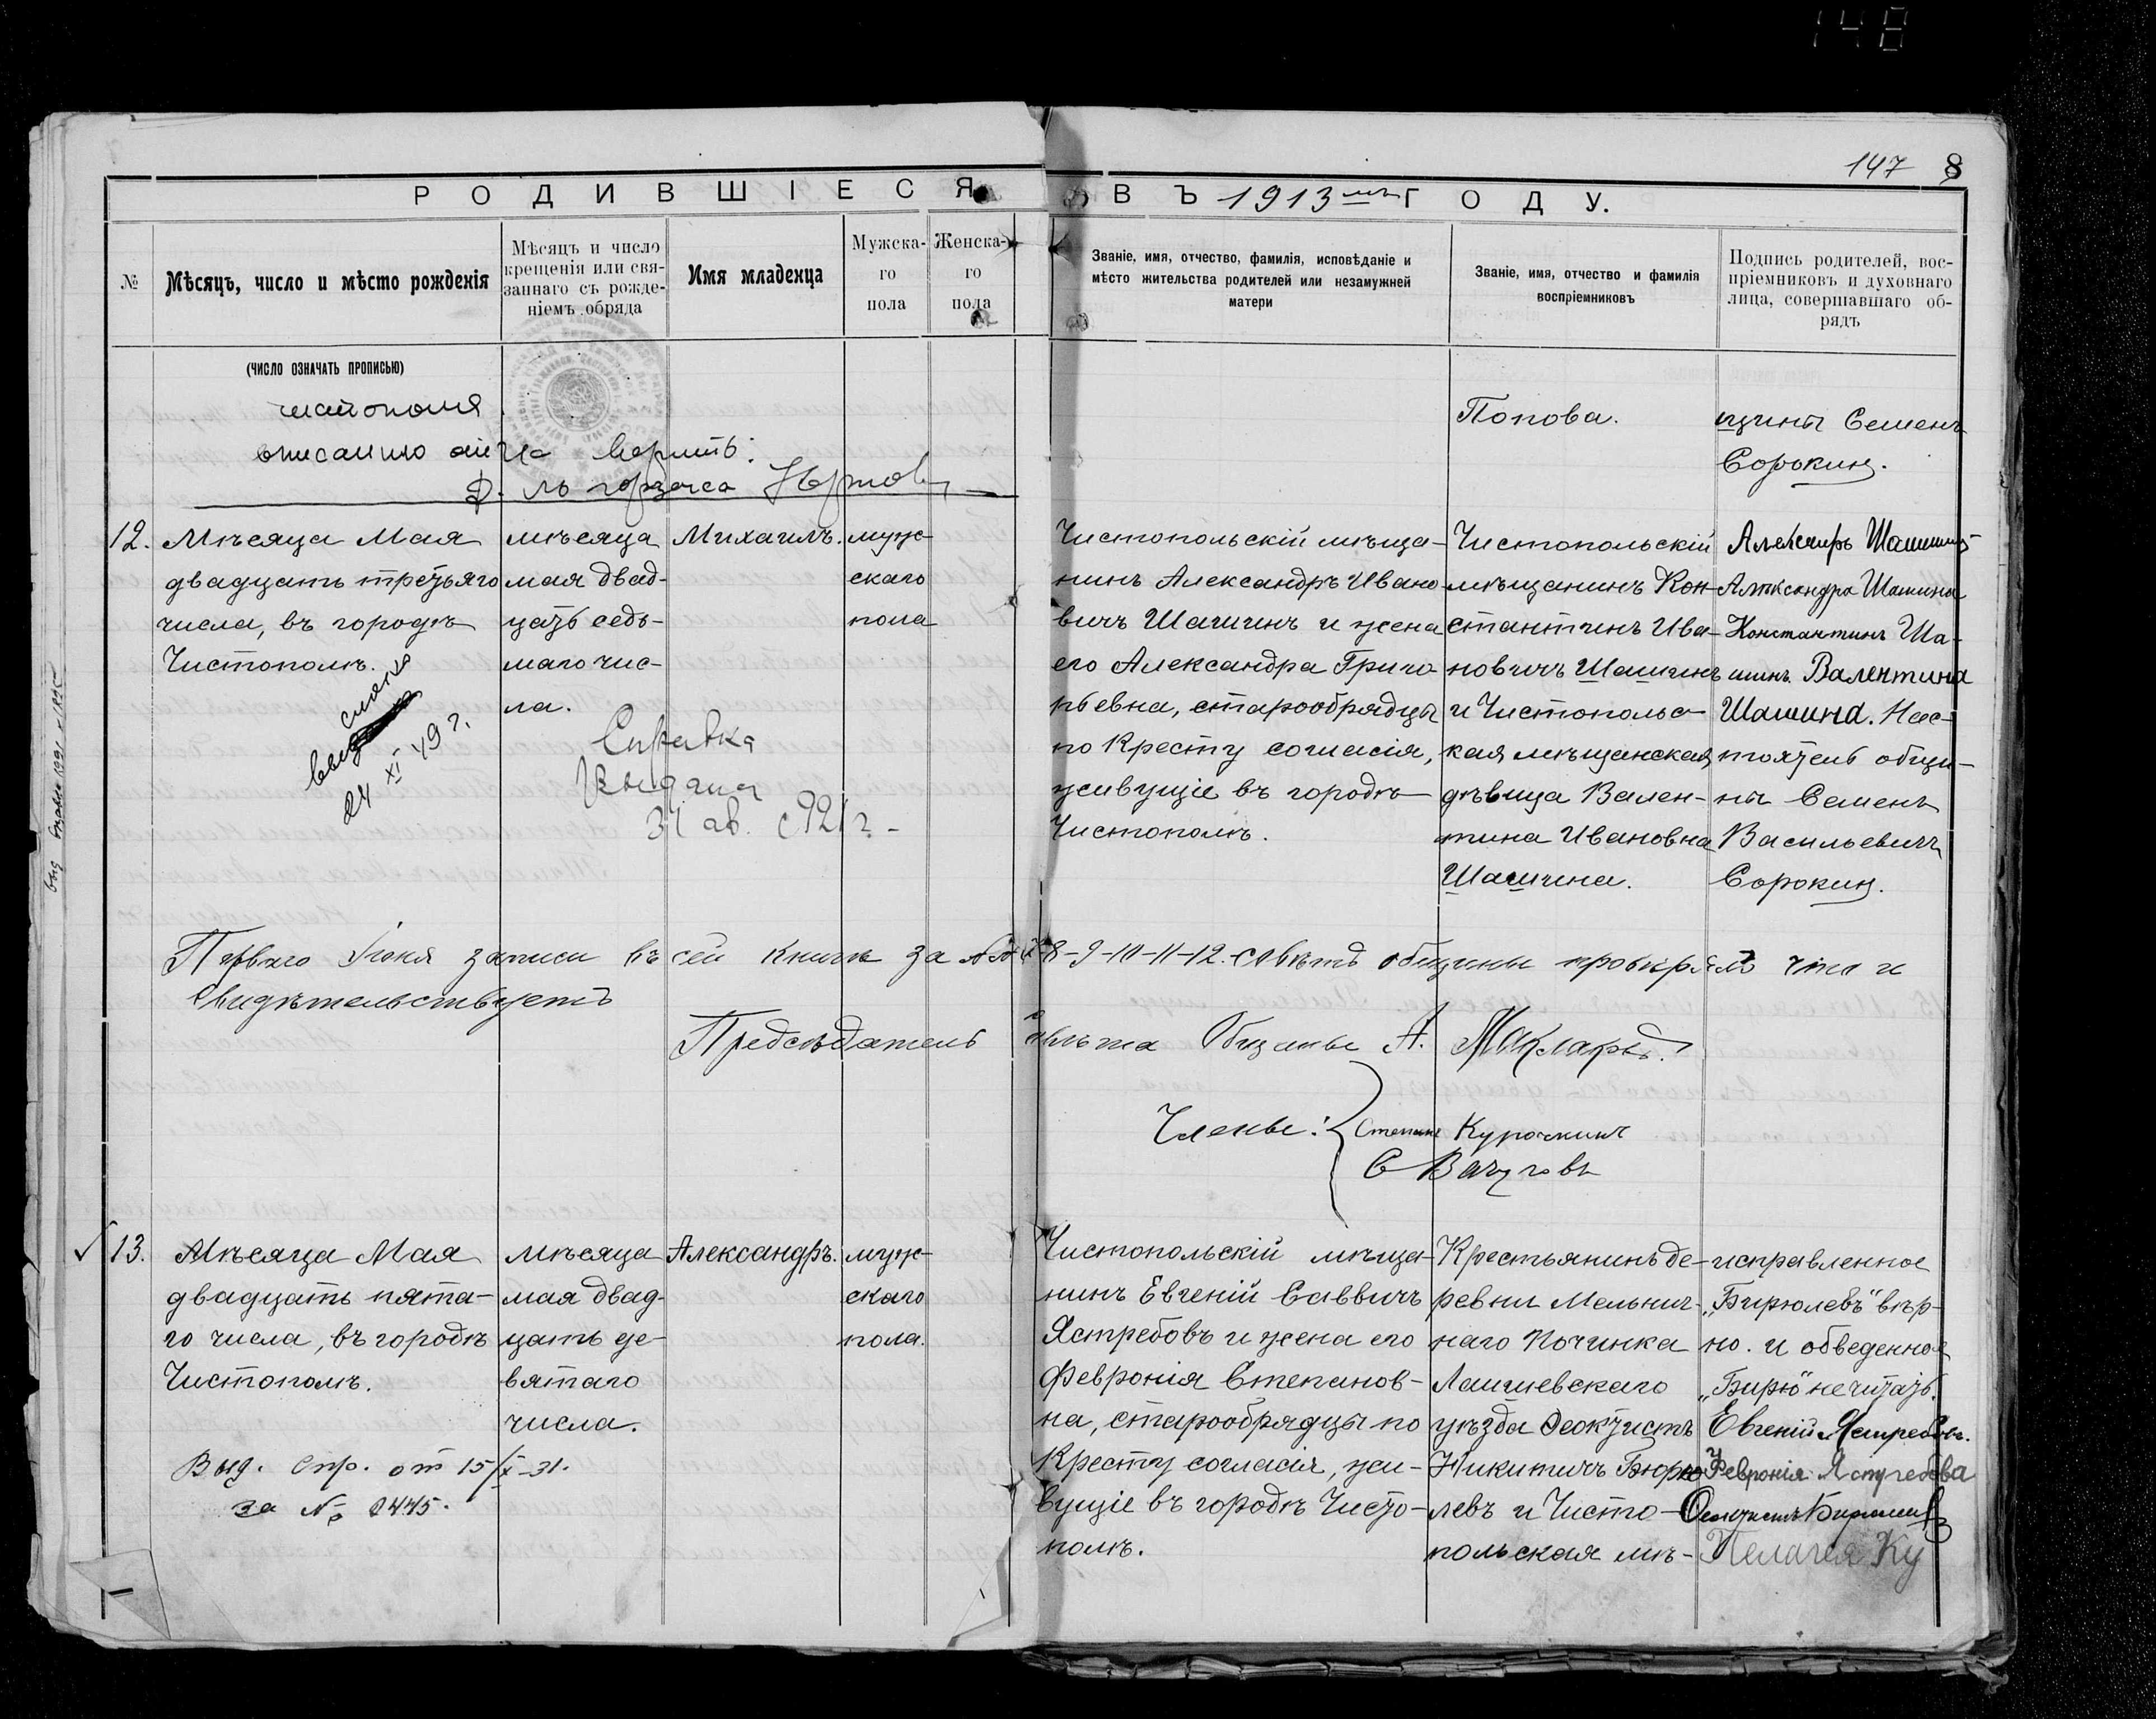 148
147 8
РОДИВШІЕСЯ ВЪ 1913мъ ГОДУ.
№
Мѣсяцъ, число и мѣсто рожденія
Мѣсяцъ и число
крещенія или свя-
заннаго съ рожде-
ніемъ обряда
Имя младенца
Мужска-
го
пола
Женска-
го
пола
Званіе, имя, отчество, фамилія, исповѣданіе и
мѣсто жительства родителей или незамужней
матери
Званіе, имя, отчество и фамилія
воспріемниковъ
Подпись родителей, вос-
пріемниковъ и духовнаго
лица, совершавшаго об-
рядъ
(ЧИСЛО ОЗНАЧАТЬ ПРОПИСЬЮ)
Попова.
щины Семенъ
Сорокин.
12.
Мѣсяца Мая
двадцать третьяго
числа, въ городѣ
Чистополѣ.
24 XI 49 г.
мѣсяца
мая двад-
цать седь-
маго чис-
ла.
Михаилъ.
муж-
скаго
пола
Справка
Выдана
31 ав. 1921 г.
Чистопольскій мѣща-
нинъ Александръ Ивано-
вичъ Шашинъ и жена
его Александра Григо-
рьевна, старообрядцы
по Кресту согласія,
живущіе въ городѣ
Чистополѣ.
Чистопольскій
мѣщанинъ Кон-
стантинъ Ива-
новичъ Шашинъ
и Чистопольс-
кая мѣщанская
дѣвица Вален-
тина Ивановна
Шашина.
Александръ Шашинъ
Александра Шашина
Константинъ Ша-
шинъ. Валентина
Шашина. Нас-
тоятель общи-
ны Семенъ
Васильевичъ
Сорокин.
Перваго Іюня записи въ сей книгѣ за №№ 8-9-10-11-12. совѣтъ общины провѣрялъ что и
свидѣтельствуетъ
Предсѣдатель Совѣта Общины А. Маклаковъ.
Члены: Степанъ Курочкинъ
С Вачуговъ
13.
Мѣсяца Мая
двадцать пята-
го числа, въ городѣ
Чистополѣ.
Выд. спр. от 15/X-31.
за №
мѣсяца
мая двад-
цать де-
вятаго
числа.
Александръ.
муж-
скаго
пола.
Чистопольскій мѣща-
нинъ Евгеній Саввичъ
Ястребовъ и жена его
Февронія Степанов-
на, старообрядцы по
Кресту согласія, жи-
вущіе въ городѣ Чисто-
полѣ.
Крестьянинъ де-
ревни Мельнич-
наго Починка
Лаишевскаго
уѣзда Феоктистъ
Никитичъ Бирю-
левъ и Чисто-
польская мѣ-
исправленное
„Бирюлевъ" вѣр-
но. и обведенное
„Бирю" не читать.
Евгеній Ястребовъ.
Февронія Ястребова
Феоктистъ Бирюлевъ
Пелагея Ку